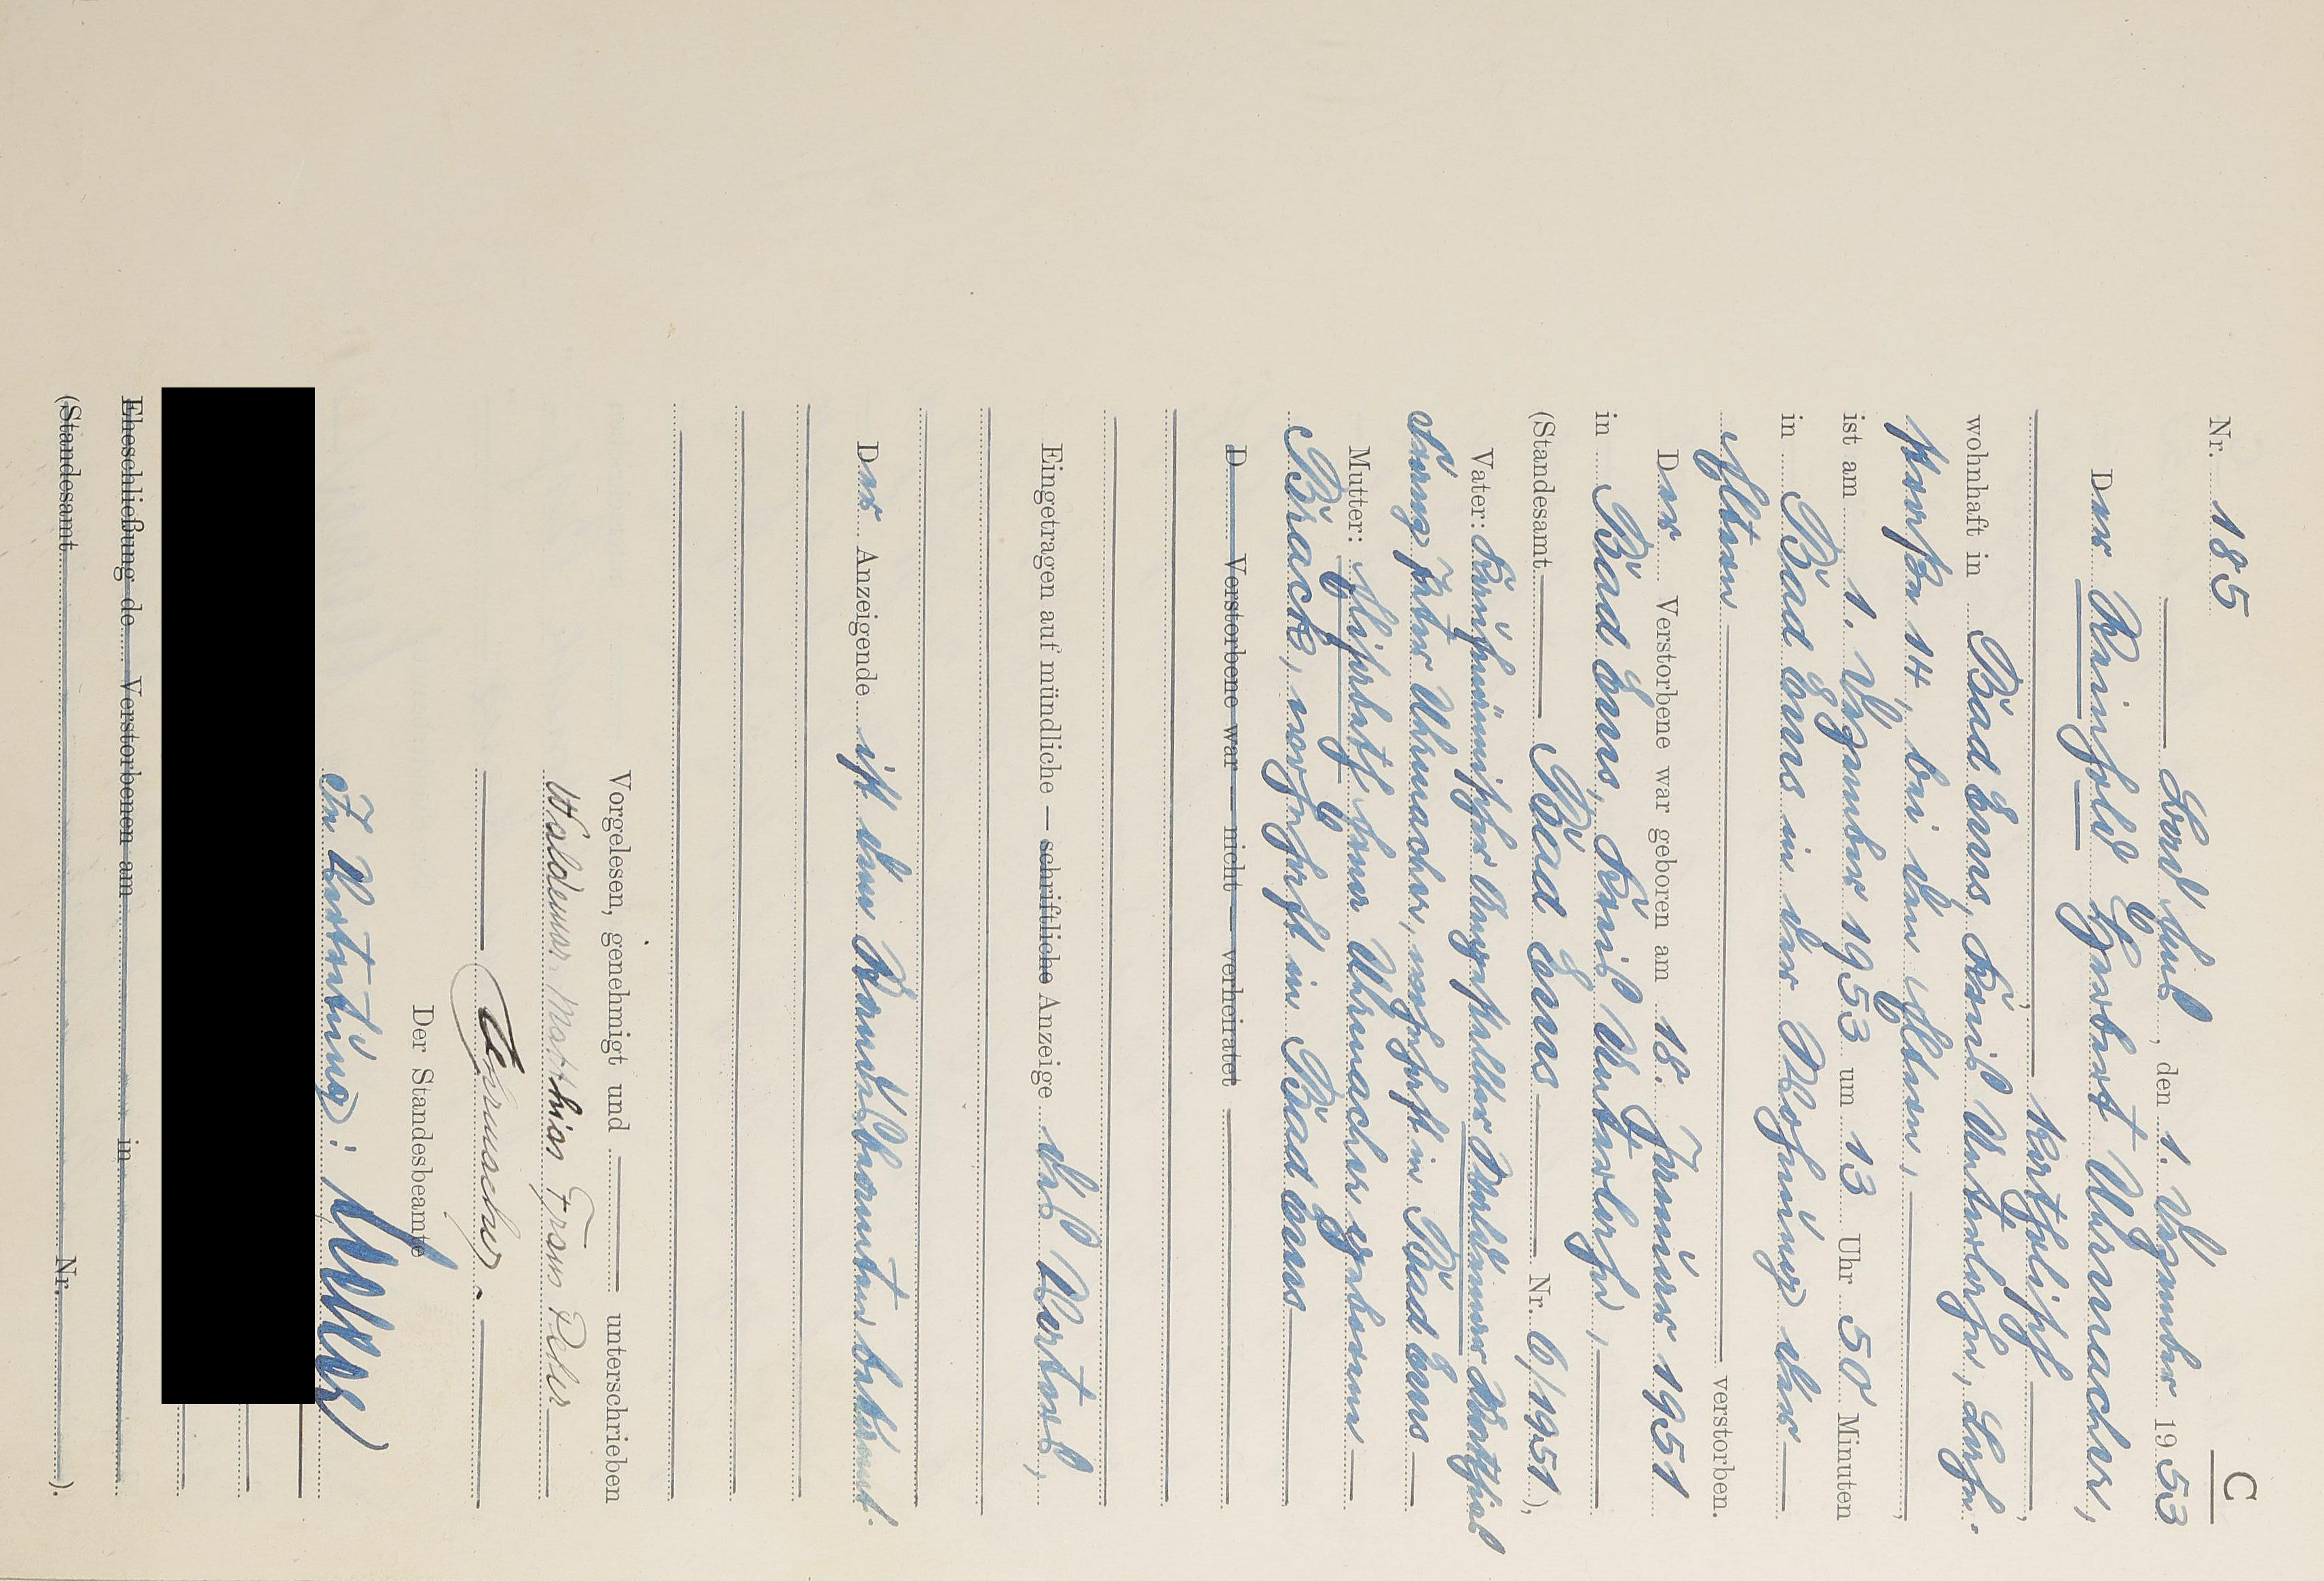 C
Nr. 185
Bad Ems, den 1. Dezember 1953
Der Reinhold Herbert Uhrmacher,
katholisch,
wohnhaft in Bad Ems, Kreis Unterlahn, Lahn-
straße 14, bei den Eltern,
ist am 1. Dezember 1953 um 13 Uhr 50 Minuten
in Bad Ems in der Wohnung der
Eltern verstorben.
Der Verstorbene war geboren am 18. Januar 1951
in Bad Ems, Kreis Unterlahn,
(Standesamt Bad Ems Nr. 6/1951),
Vater: Kaufmännischer Angestellter Waldemar Matthias
Franz Peter Uhrmacher, wohnhaft in Bad Ems
Mutter: Elisabeth Uhrmacher geborene
Brack, wohnhaft in Bad Ems
D Verstorbene war — nicht — verheiratet
Eingetragen auf mündliche — schriftliche Anzeige des Vaters,
Der Anzeigende ist dem Standesbeamten bekannt.
Vorgelesen, genehmigt und unterschrieben
Waldemar Matthias Franz Peter
Uhrmacher.
Der Standesbeamte
In Vertretung:
Eheschließung de Verstorbenen am in
(Standesamt Nr. ).